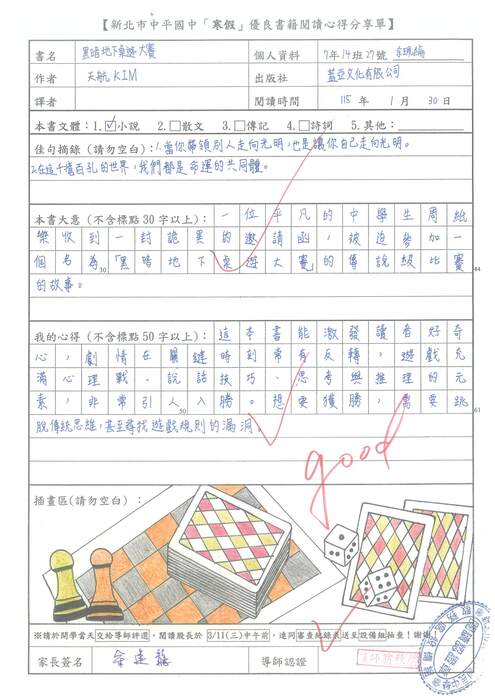 【新北市中平國中「寒假」優良書籍閱讀心得分享單】
書名 黑暗地下桌遊大賽 個人資料 7年14班27號
作者 天航KIM 出版社 蓋亞文化有限公司
譯者 閱讀時間 115年1月30日
本書文體：1.☑小說 2.□散文 3.□傳記 4.□詩詞 5.其他：
佳句摘錄(請勿空白)：1.當你帶領別人走向光明，也是讓你自己走向光明。
2.在這千瘡百孔的世界，我們都是命運的共同體。
本書大意(不含標點30字以上)：一位平凡的中學生周紙
樂收到一封詭異的邀請函，被迫參加一
個名為「黑暗地下桌遊大賽」的傳說級比賽
30 44
的故事。
我的心得(不含標點50字以上)：這本書能激發讀者好奇
心，劇情在關鍵時刻常有反轉，遊戲充
滿心理戰、說話技巧、思考與推理的元
素，非常引人入勝。想要獲勝，需要跳
50 61
脫傳統思維，甚至尋找遊戲規則的漏洞。
good
插畫區(請勿空白)：
※請於開學當天交給導師評選，閱讀股長於3/11(三)中午前，連同審查紀錄表送至設備組抽查！謝謝
家長簽名 導師認證